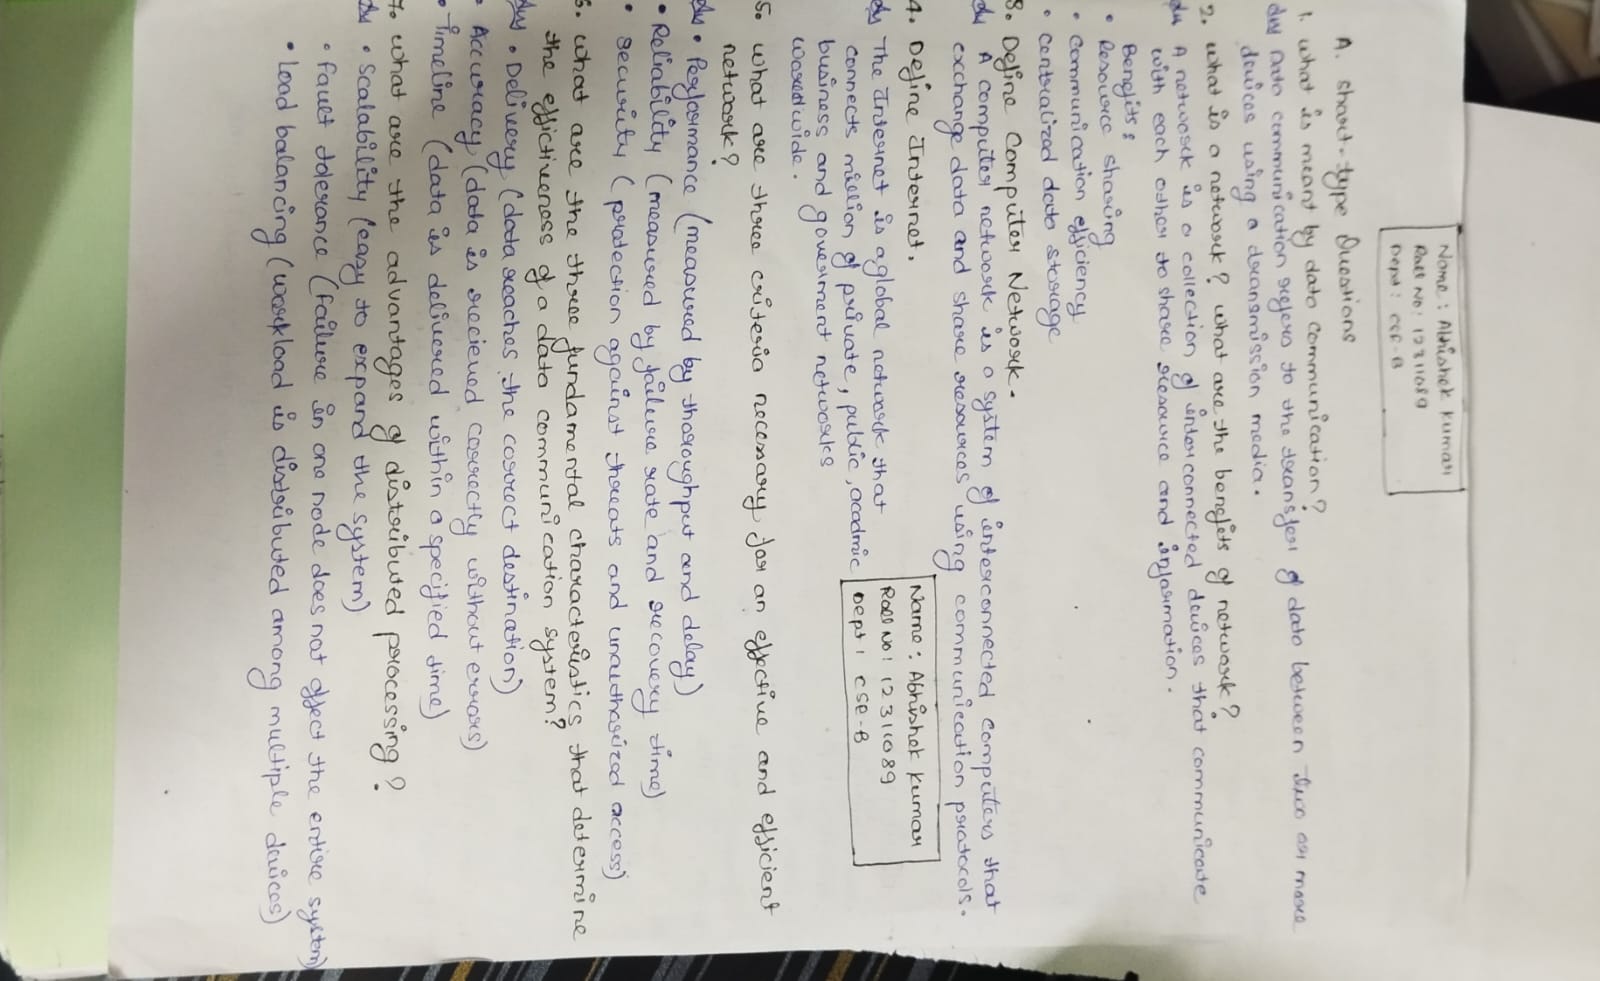 Name : Abhishek Kumar
Roll No: 12311089
Dept : CSE-B
A. Short-type Questions
1. what is meant by data communication?
Ans Data communication refers to the transfer of data between two or more
devices using a transmission media.
2. what is a network? what are the benefits of network?
Ans A network is a collection of interconnected devices that communicate
with each other to share resource and information.
Benefits :
• Resource sharing
• Communication efficiency
• Centralized data storage
3. Define Computer Network.
Ans A computer network is a system of interconnected computers that
exchange data and share resources using communication protocols.
4. Define Internet.
Ans The Internet is a global network that
connects million of private, public, acadmic
business and goverment networks
worldwide.
Name : Abhishek Kumar
Roll No: 12311089
Dept : CSE-B
5. what are three criteria necessary for an effective and efficient
network?
Ans • Performance (measured by thoroughput and delay)
• Reliability (measured by failure rate and recovery time)
• security (protection against threats and unauthorized access)
6. what are the three fundamental characteristics that determine
the effictiveness of a data communication system?
Ans • Delivery (data reaches the correct destination)
• Accuracy (data is recieved correctly without errors)
• Timeline (data is delivered within a specified time)
7. what are the advantages of distributed processing?
Ans • Scalability (easy to expand the system)
• fault tolerance (failure in one node does not affect the entire system)
• Load balancing (workload is distributed among multiple devices)